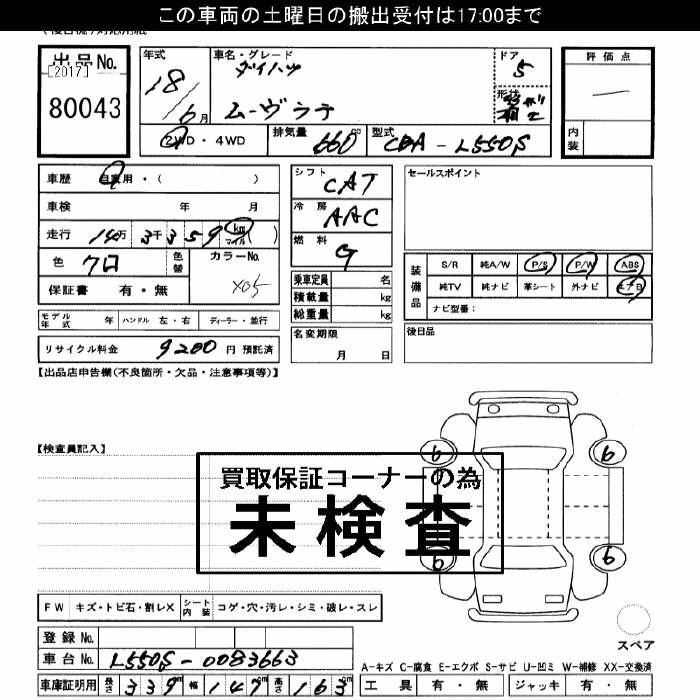 この車両の土曜日の搬出受付は17:00まで
出品No.
[2017]
80043
年式
18/6月
車名・グレード
ダイハツ
ムーヴラテ
ドア
5
形状
評価点
内装
2WD・4WD
排気量
660
cc
型式
CBA-L550S
車歴
自家用・( )
車検 年 月
走行 14万3千359 km マイル ( )
色 クロ
色替
カラーNo.
X05
保証書 有・無
モデル年式 年 ハンドル 左・右 ディーラー・並行
リサイクル料金 9200 円 預託済
シフト
CAT
冷房
AAC
燃料
G
乗車定員 名
積載量 kg
総重量 kg
名変期限
月 日
セールスポイント
装備品
S/R 純A/W P/S P/W ABS
純TV 純ナビ 革シート 外ナビ エアB
ナビ型番:
後日品
【出品店申告欄(不良箇所・欠品・注意事項等)】
【検査員記入】
買取保証コーナーの為
未検査
6
6
6
6
FW キズ・トビ石・割レX シート内装 コゲ・穴・汚レ・シミ・破レ・スレ
登録No.
車台No. L550S-0083663
車庫証明用 長さ 339cm 幅 147cm 高さ 163cm
スペア
A-キズ C-腐食 E-エクボ S-サビ U-凹ミ W-補修 XX-交換済
工具 有・無 ジャッキ 有・無